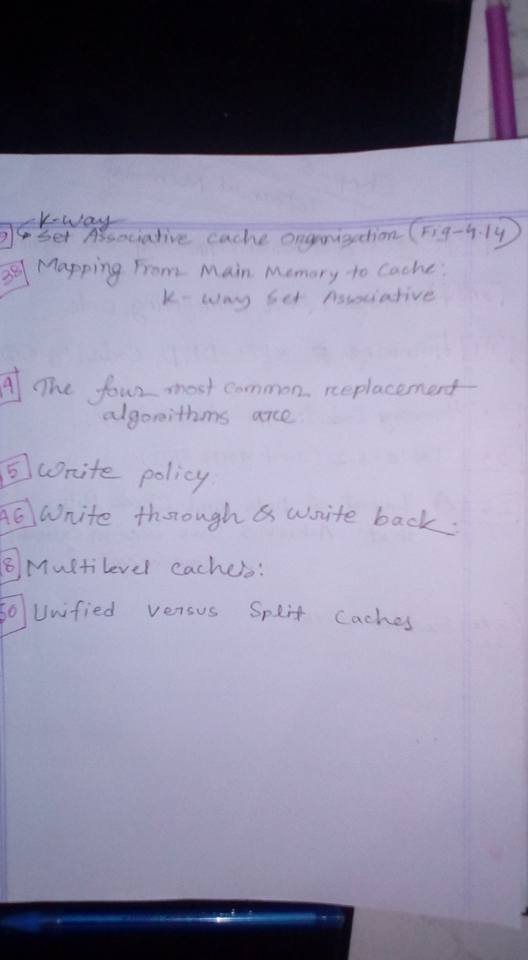 K-way
Set Associative cache organization (Fig-4.14)
38 Mapping From Main Memory to Cache:
K-way Set Associative
The four most common replacement
algorithms are
5 Write policy.
46 Write through & write back:
8 Multilevel caches:
50 Unified versus Split Caches